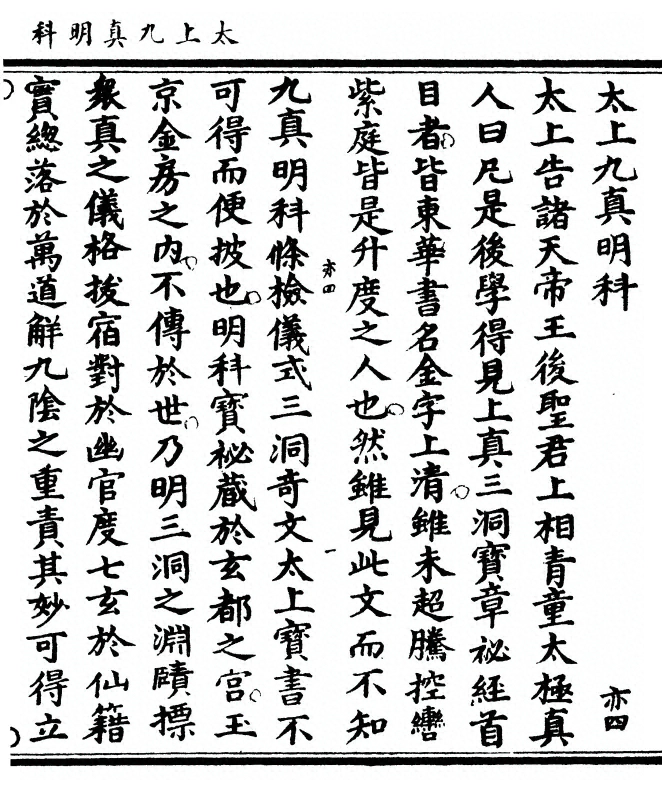 太上九真明科
太上九真明科
亦四
太上告諸天帝王後聖君上相青童太極真
人曰凡是後學得見上真三洞寶章祕經首
目者皆東華書名金字上清雖未超騰控轡
紫庭皆是升度之人也然雖見此文而不知
亦四
一
九真明科條檢儀式三洞奇文太上寶書不
可得而便披也明科寶祕藏於玄都之宮玉
京金房之内不傳於世乃明三洞之淵賾摽
衆真之儀格拔宿對於幽官度七玄於仙籍
實總落於萬道解九陰之重責其妙可得立